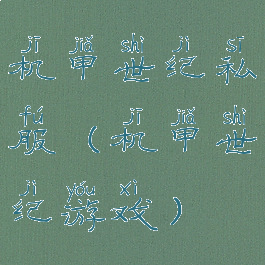 jī jiǎ shì jì sī
机甲世纪私
fú jī jiǎ shì
服（机甲世
jì yóu xì
纪游戏）